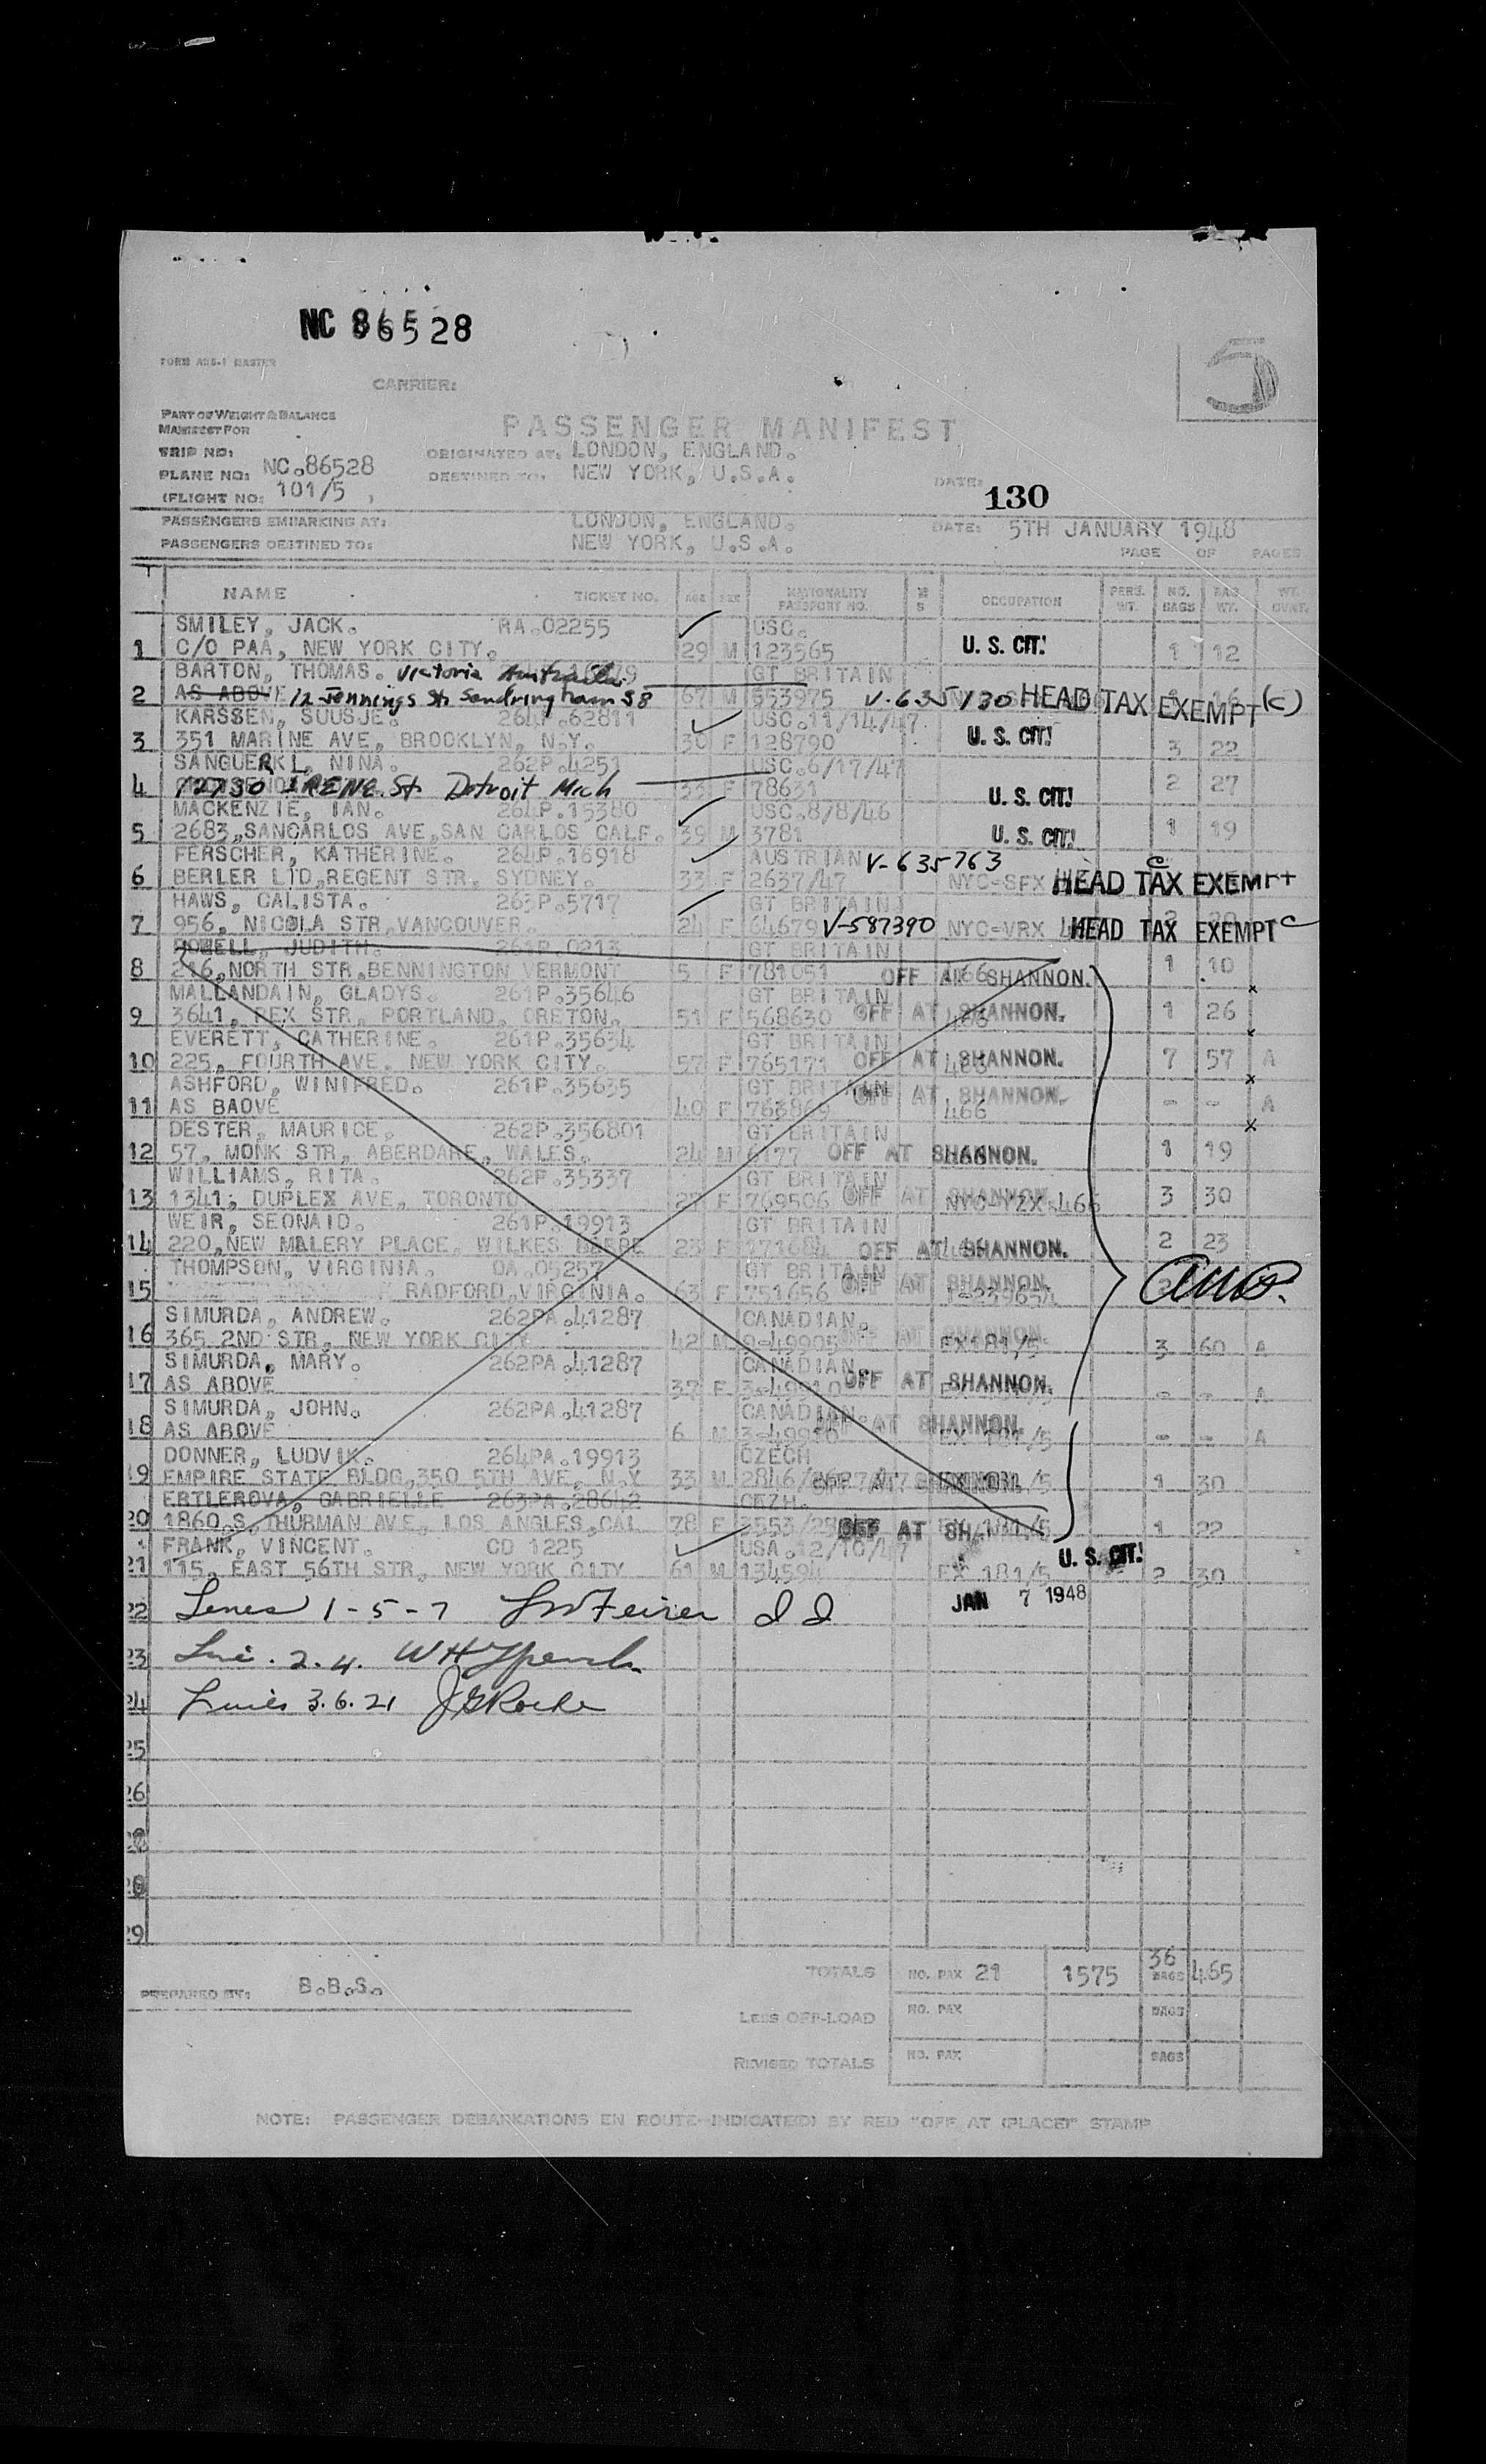 NC 86528
5
FORM ABS-1 MASTER
CARRIER:
PART OF WEIGHT & BALANCE
MANIFEST FOR
PASSENGER MANIFEST
TRIP NO:
ORIGINATED AT: LONDON, ENGLAND.
PLANE NO: NC.86528
DESTINED TO: NEW YORK, U.S.A.
(FLIGHT NO: 101/5 )
DATE: 130
PASSENGERS EMBARKING AT: LONDON, ENGLAND. DATE: 5TH JANUARY 1948
PASSENGERS DESTINED TO: NEW YORK, U.S.A. PAGE OF PAGES
NAME TICKET NO. AGE SEX NATIONALITY PASSPORT NO. M S OCCUPATION PERS. WT. NO. BAGS BAG. WT. WT. OVWT.
SMILEY, JACK. RA.02255 USC.
1 C/O PAA, NEW YORK CITY. 29 M 123565 U. S. CIT. 1 12
BARTON, THOMAS. Victoria Australia GT BRITAIN
2 AS ABOVE 12 Jennings St Sandringham S8 67 M 553975 V-635130 HEAD TAX EXEMPT (C) 16
KARSSEN, SUUSJE. 264P.62811 USC.11/14/47
3 351 MARINE AVE, BROOKLYN, N.Y. 30 F 128790 U. S. CIT. 3 22
SANGUERKL, NINA. 262P.4251 USC.6/17/47
4 12730 IRENE St Detroit Mich 33 F 78631 U. S. CIT. 2 27
MACKENZIE, IAN. 264P.15380 USC.8/8/46
5 2683,SANCARLOS AVE,SAN CARLOS CALF. 39 M 3781 U. S. CIT. 1 19
FERSCHER, KATHERINE. 264P.16918 AUSTRIAN V-635763
6 BERLER LTD,REGENT STR. SYDNEY. 33 F 2637/47 NYC-SFX HEAD TAX EXEMPT C
HAWS, CALISTA. 263P.5717 GT BRITAIN
7 956, NICOLA STR,VANCOUVER. 24 F 64679 V-587390 NYC-VRX HEAD TAX EXEMPT C
POWELL, JUDITH. 261P.0213 GT BRITAIN
8 216,NORTH STR,BENNINGTON VERMONT 5 F 781051 OFF AT SHANNON. 466 1 10
MALLANDAIN, GLADYS. 261P.35646 GT BRITAIN x
9 3641, REX STR, PORTLAND, ORETON. 51 F 568630 OFF AT SHANNON. 466 1 26
EVERETT, CATHERINE. 261P.35634 GT BRITAIN x
10 225, FOURTH AVE. NEW YORK CITY. 57 F 765171 OFF AT SHANNON. 466 7 57 A
ASHFORD, WINIFRED. 261P.35635 GT BRITAIN OFF AT SHANNON. x
11 AS BAOVE 40 F 763869 466 - - A
DESTER, MAURICE. 262P.356801 GT BRITAIN x
12 57, MONK STR, ABERDARE, WALES. 24 M 6177 OFF AT SHANNON. 466 1 19
WILLIAMS, RITA. 262P.35337 GT BRITAIN
13 1341, DUPLEX AVE, TORONTO 27 F 769506 OFF AT SHANNON NYC-YZX.466 3 30
WEIR, SEONAID. 261P.19913 GT BRITAIN
14 220,NEW MALERY PLACE, WILKES BERRE 23 F 171684 OFF AT SHANNON. 2 23
THOMPSON, VIRGINIA. OA.05257 GT BRITAIN
15 RADFORD,VIRGINIA. 63 F 751656 OFF AT SHANNON. 2
SIMURDA, ANDREW. 262PA.41287 CANADIAN.
16 365 2ND STR, NEW YORK CITY 42 M 9-49905 OFF AT SHANNON. EX181/5 3 60 A
SIMURDA, MARY. 262PA.41287 CANADIAN.
17 AS ABOVE 37 F 3-49910 OFF AT SHANNON. - - A
SIMURDA, JOHN. 262PA.41287 CANADIAN
18 AS ABOVE 6 M 3-49910 OFF AT SHANNON. EX 181/5 - - A
DONNER, LUDVIK. 264PA.19913 CZECH
19 EMPIRE STATE BLDG,350 5TH AVE, N.Y 33 M 2846/ OFF AT SHANNON. 1 30
ERTLEROVA, GABRIELLE 263PA.28642 CEZH.
20 1860,S,THURMAN AVE, LOS ANGLES,CAL 78 F 3553/ OFF AT SH 1 22
FRANK, VINCENT. CD 1225 USA.12/10/47 U. S. CIT.
21 115, EAST 56TH STR, NEW YORK CITY 61 M 134594 EX 181/5 2 30
22 Lines 1-5-7 JAN 7 1948
23 Line. 2.4.
24 Lines 3.6.21 JGRoche
25
26
29
TOTALS NO. PAX 21 1575 36 BAGS 465
PREPARED BY: B.B.S.
LESS OFF-LOAD NO. PAX BAGS
REVISED TOTALS NO. PAX BAGS
NOTE: PASSENGER DEBARKATIONS EN ROUTE-INDICATE(D) BY RED "OFF AT (PLACE)" STAMP